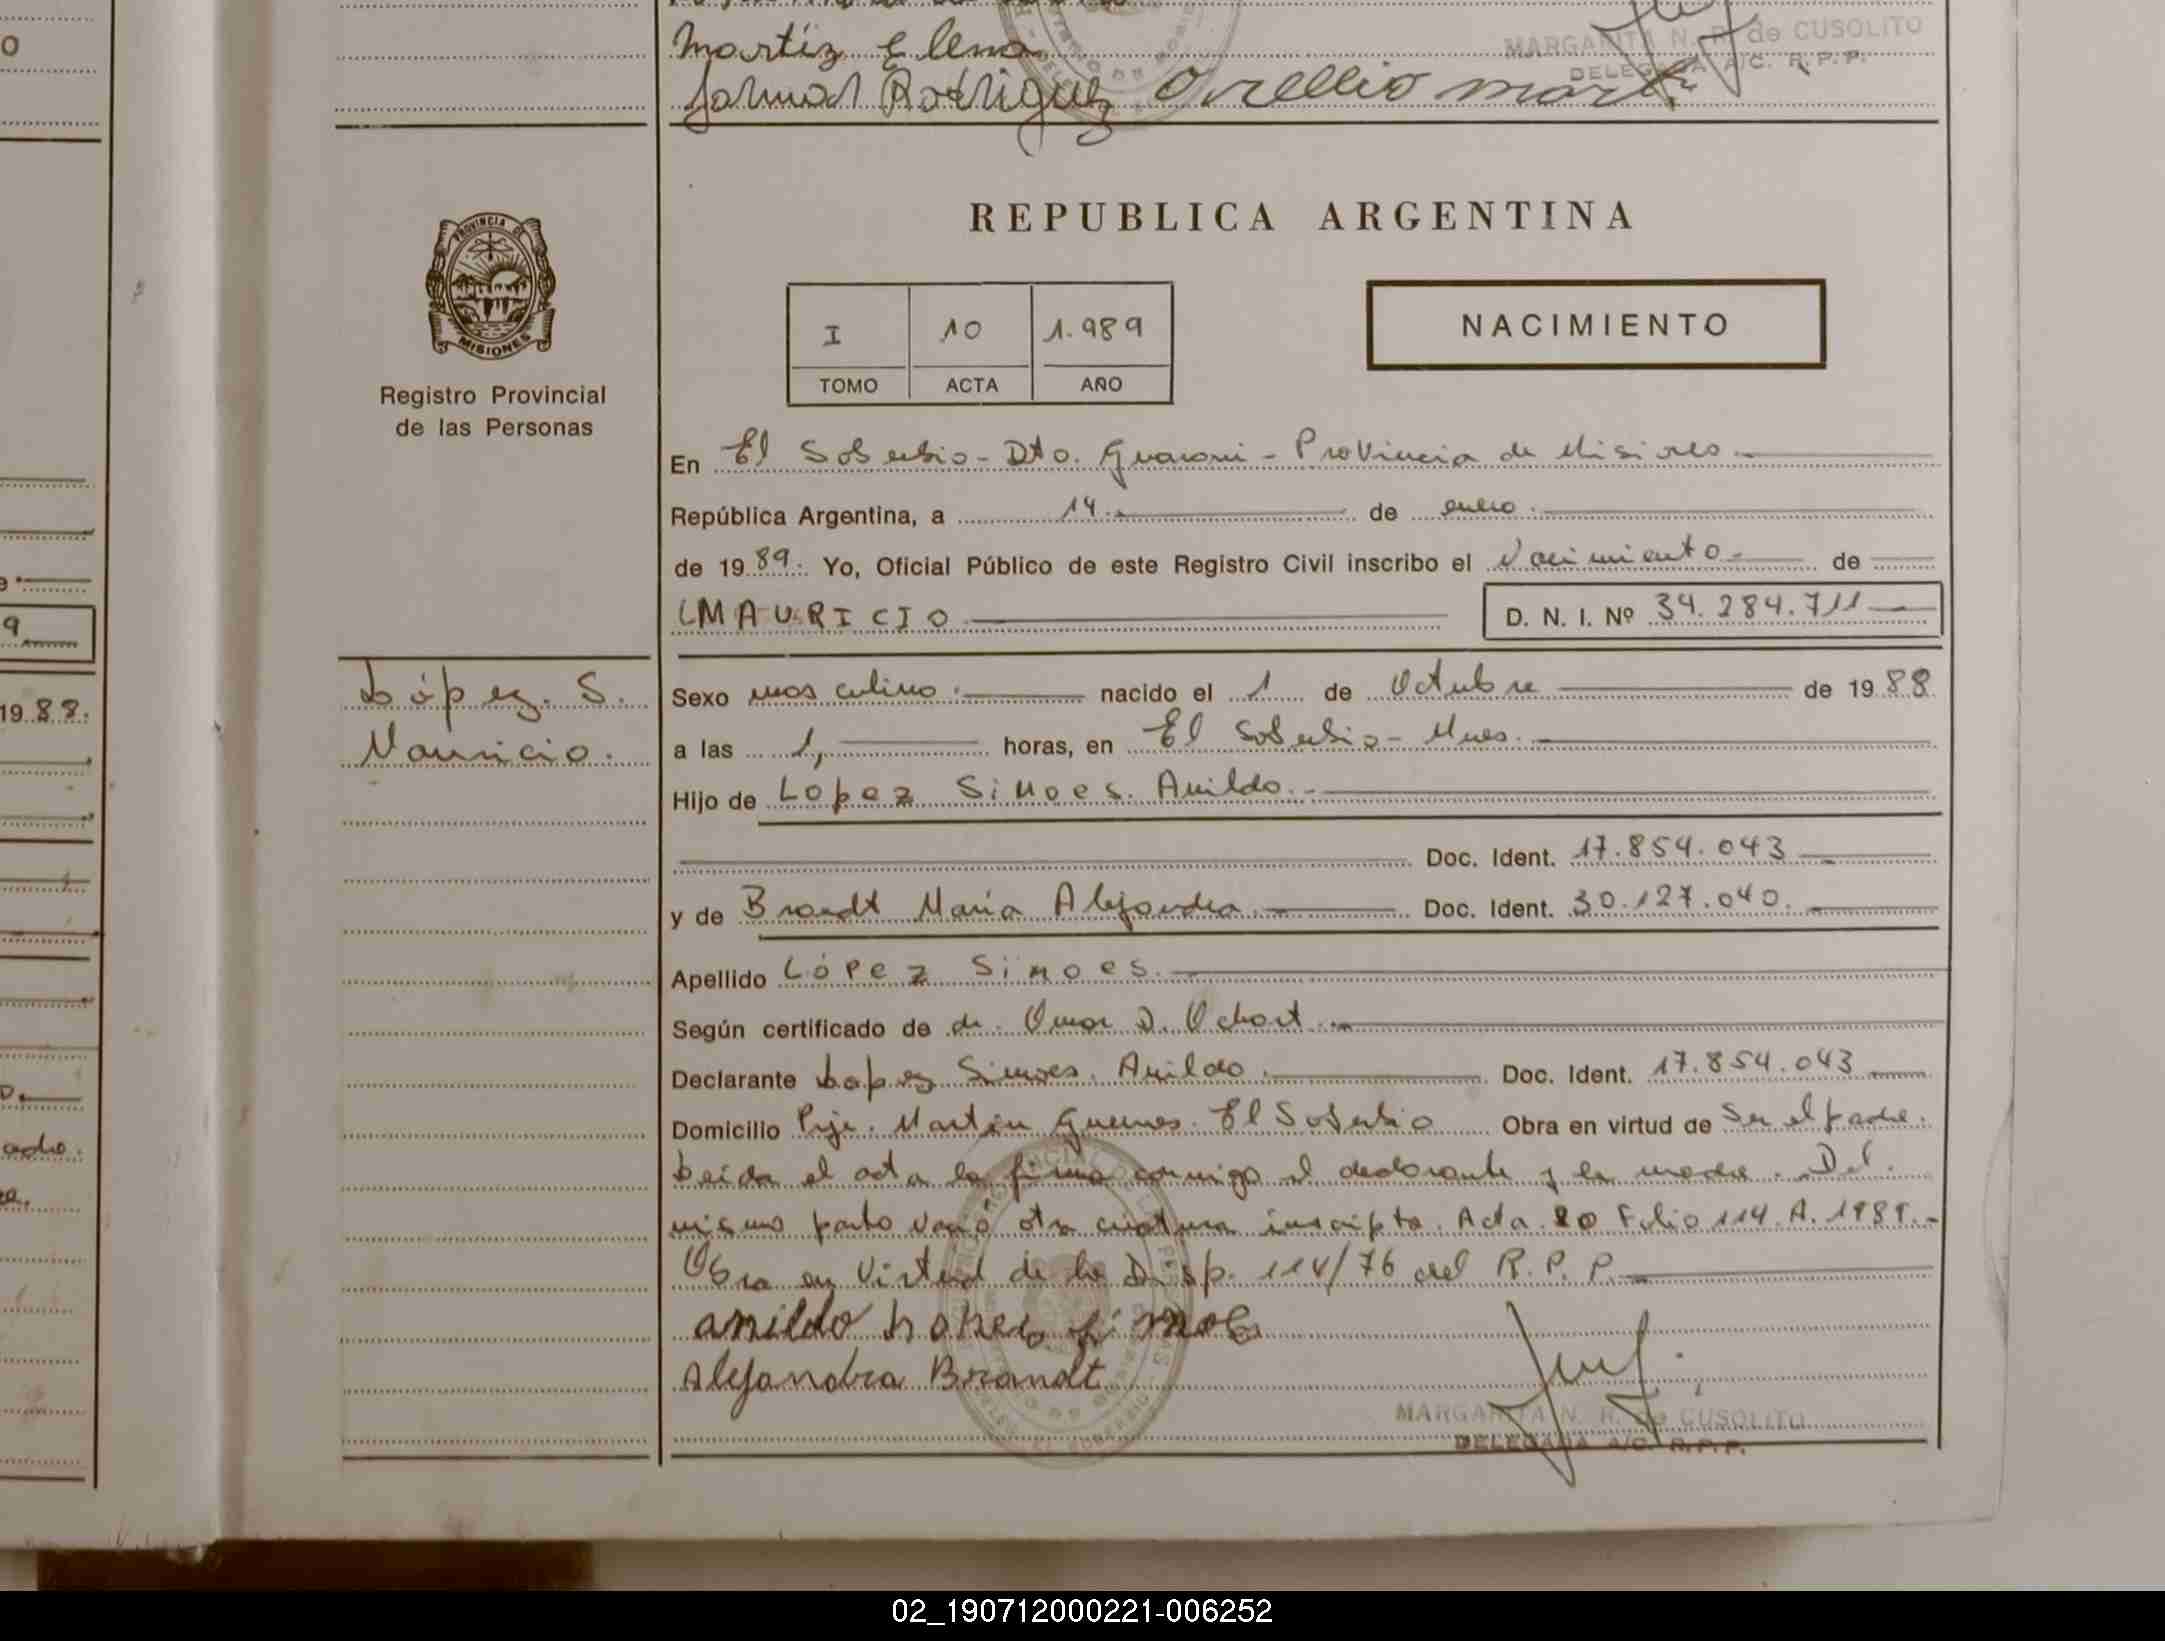 O
Martiz Elena
MARGARITA N. R. de CUSOLITO
DELEGADA A/C. R.P.P.
Rodriguez Orellio
REPUBLICA ARGENTINA
PROVINCIA DE
MISIONES
Registro Provincial
de las Personas
I 10 1.989
TOMO ACTA AÑO
NACIMIENTO
En El Soberbio - Dto. Guarani - Provincia de Misiones.
República Argentina, a 14. de enero.
de 1989. Yo, Oficial Público de este Registro Civil inscribo el Nacimiento - de
MAURICIO
D. N. I. Nº 34.284.711
9
1988.
López. S.
Mauricio.
Sexo masculino. nacido el 1 de Octubre de 1988
a las 1, horas, en El Soberbio - Mnes.
Hijo de Lopez Simoes. Anildo.-
Doc. Ident. 17.854.043
y de Brandt Maria Alejandra. Doc. Ident. 30.127.040.
Apellido López Simoes.
Según certificado de dr. Omar D.
Declarante Lopez Simoes. Anildo. Doc. Ident. 17.854.043
Domicilio Pje. Martin Guemes. El Soberbio Obra en virtud de Ser el padre.
Leida el acta la firma conmigo el declarante y la madre. Del
mismo parto nacio otra criatura inscripta. Acta Folio 114. A. 1989.-
Obra en virtud de la Disp. 114/76 del R. P. P.
anildo Lopes simoes
Alejandra Brandt
MARGARITA N. R. de CUSOLITO
DELEGADA A/C. R.P.P.
02_190712000221-006252